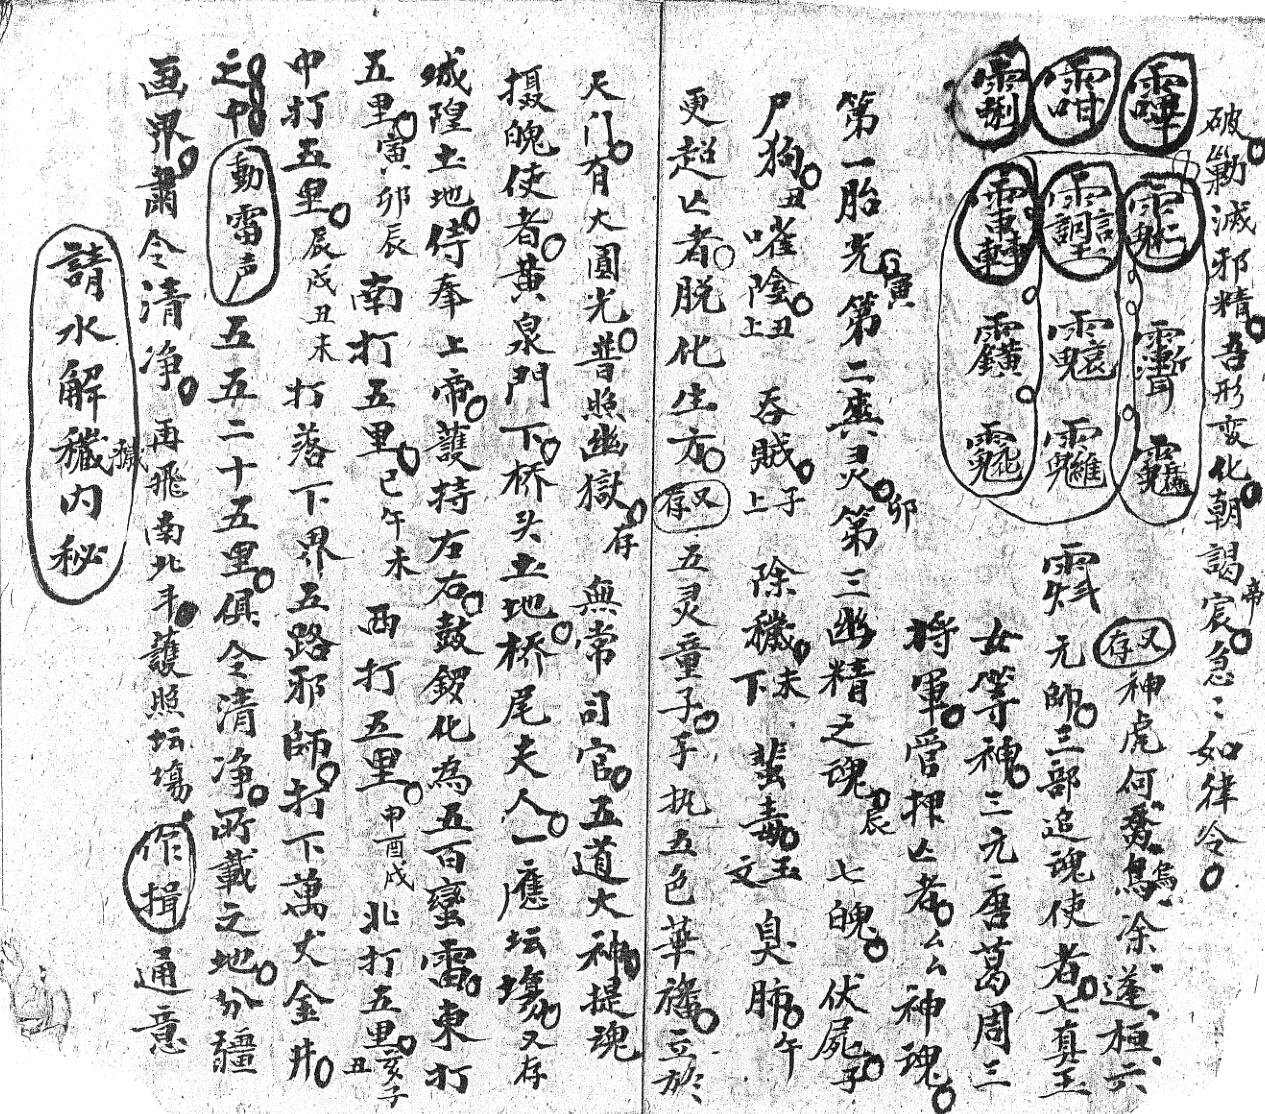 破勦滅邪精吾形变化朝謁宸帝急〻如律令
又存神虎何喬鳥烏涂蓬桓六
元帥三部追魂使者七真玉
女等神三元唐葛周三
将軍管押亡者厶厶神魂
第一胎光寅第二爽灵卯第三幽精之魂辰七魄伏屍子
尸狗丑嚾陰丑上吞賊子上除穢未下蜚毒玉文臭肺午
更超亡者脱化生方又存五灵童子手执五色華旛立於
天门有大圓光普照幽獄存無常司官五道大神提魂
摄魄使者黄泉門下桥头土地桥尾夫人一應坛塲又存
城隍土地侍奉上帝護持左右鼓鑼化為五百蠻雷東打
五里寅卯辰南打五里巳午未西打五里申酉戌北打五里亥子丑
中打五里辰戌丑未打落下界五路邪師打下萬丈金井
之中動雷声五五二十五里俱令清净所載之地分疆
画界肅令清净再飛南北斗護照坛塲作揖通意
請水解穢内秘